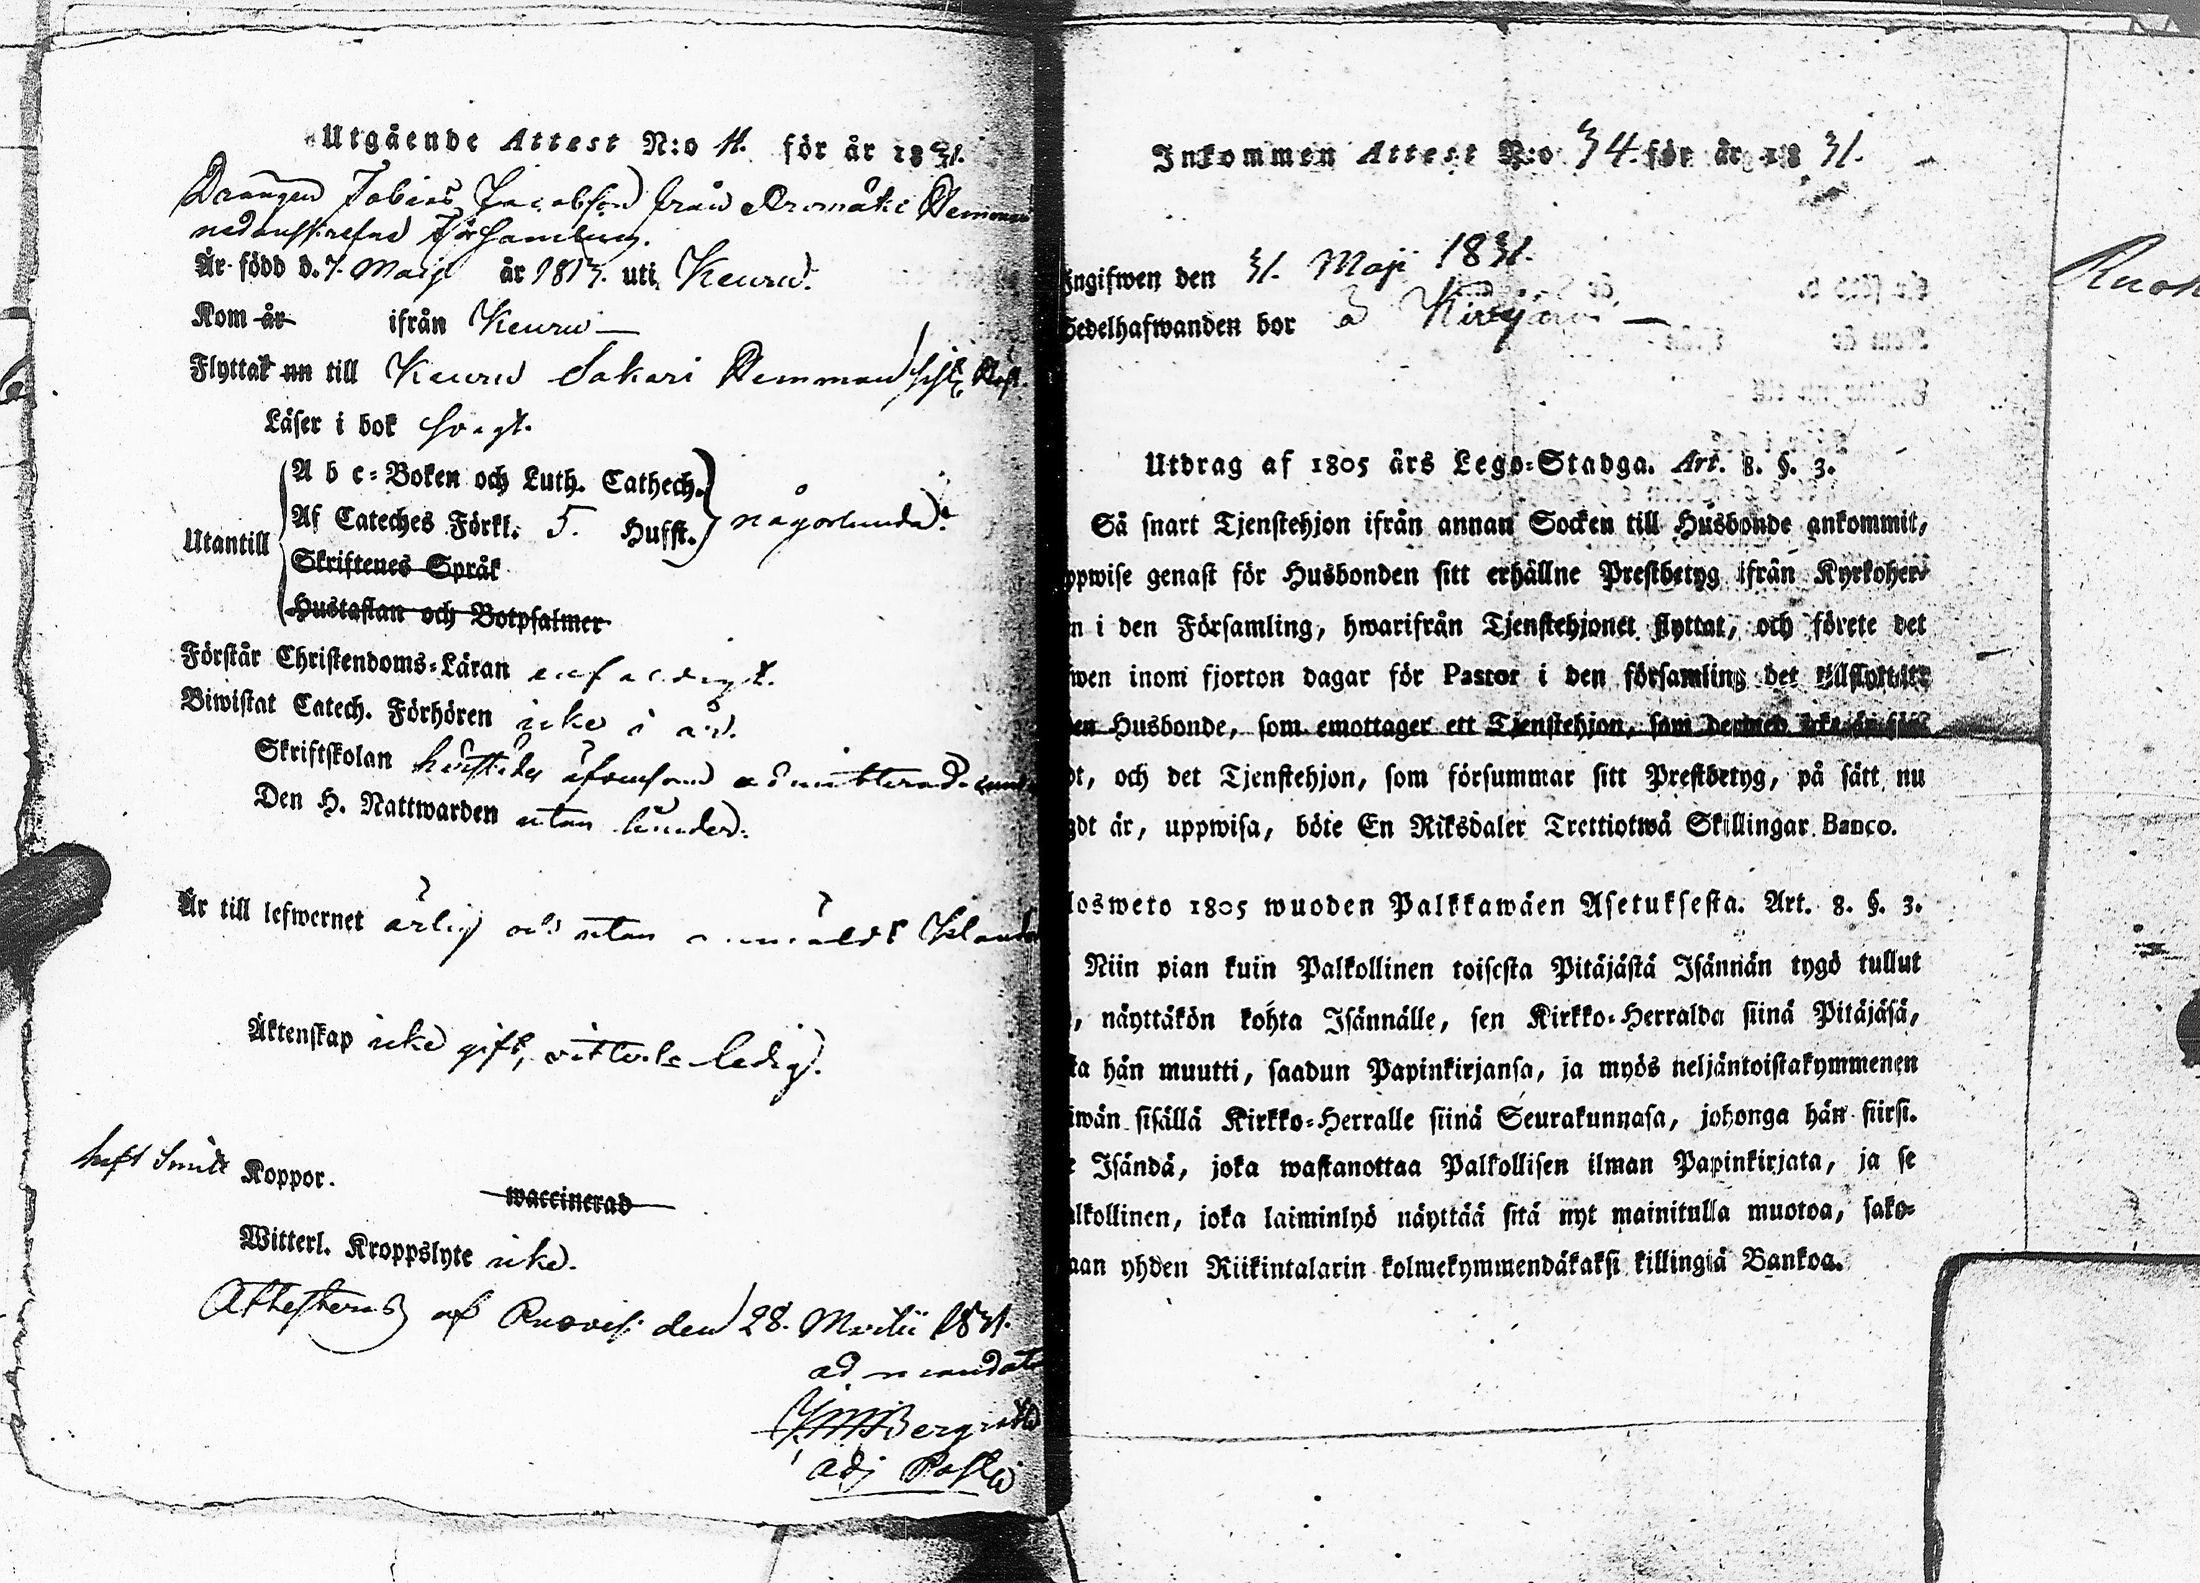 Utgående Attest N:o 11. för år 1831.
Drängen Tobias Jacobsson från Aromäki Hemman
nedanskrefne Församling.
Är född d. 7. Maji år 1813. uti Keuru.
Kom år ifrån Keuru
Flyttat nu till Keuru Sakari Hemman
Läser i bok svagt.
Utantill
A b c-Boken och Luth. Cathech.
Af Cateches Förkl. 5. Hufst. någorlunda.
Skriftenes Språk
Hustaflan och Botpsalmer
Förstår Christendoms-Läran enfaldigt.
Biwistat Catech. Förhören icke i år.
Skriftskolan
Den H. Nattwarden utan hinder.
Är till lefwernet ärlig och utan
Äktenskap icke gift, vitterl. ledig.
haft Smitt Koppor. waccinerad
Witterl. Kroppslyte icke.
Attesteras af Ruovesi den 28. Martii 1831.
ad mandatu
Bergroth
adj Past
Inkommen Attest N:o 34. för år 1831.
Ingifwen den 31. Maji 1831.
Sedelhafwanden bor å
Utdrag af 1805 års Lego-Stadga. Art. 8. §. 3.
Så snart Tjenstehjon ifrån annan Socken till Husbonde ankommit,
uppwise genast för Husbonden sitt erhållne Prestbetyg ifrån Kyrkoher-
n i den Församling, hwarifrån Tjenstehjonet flyttat, och förete det
wen inom fjorton dagar för Pastor i den församling det tillflyttar
en Husbonde, som emottager ett Tjenstehjon, som dermed icke är förs
dt, och det Tjenstehjon, som försummar sitt Prestbetyg, på sätt nu
gdt är, uppwisa, böte En Riksdaler Trettiotwå Skillingar Banco.
losweto 1805 wuoden Palkkawäen Asetuksesta. Art. 8. §. 3.
Niin pian kuin Palkollinen toisesta Pitäjästä Isännän tygö tullut
, näyttäkön kohta Isännälle, sen Kirkko-Herralda siinä Pitäjäsä,
ta hän muutti, saadun Papinkirjansa, ja myös neljäntoistakymmenen
iwän sisällä Kirkko-Herralle siinä Seurakunnasa, johonga hän siirsi.
Isändä, joka wastanottaa Palkollisen ilman Papinkirjata, ja se
alkollinen, joka laiminlyö näyttää sitä nyt mainitulla muotoa, sako-
aan yhden Riikintalarin kolmekymmendäkaksi killingiä Bankoa.